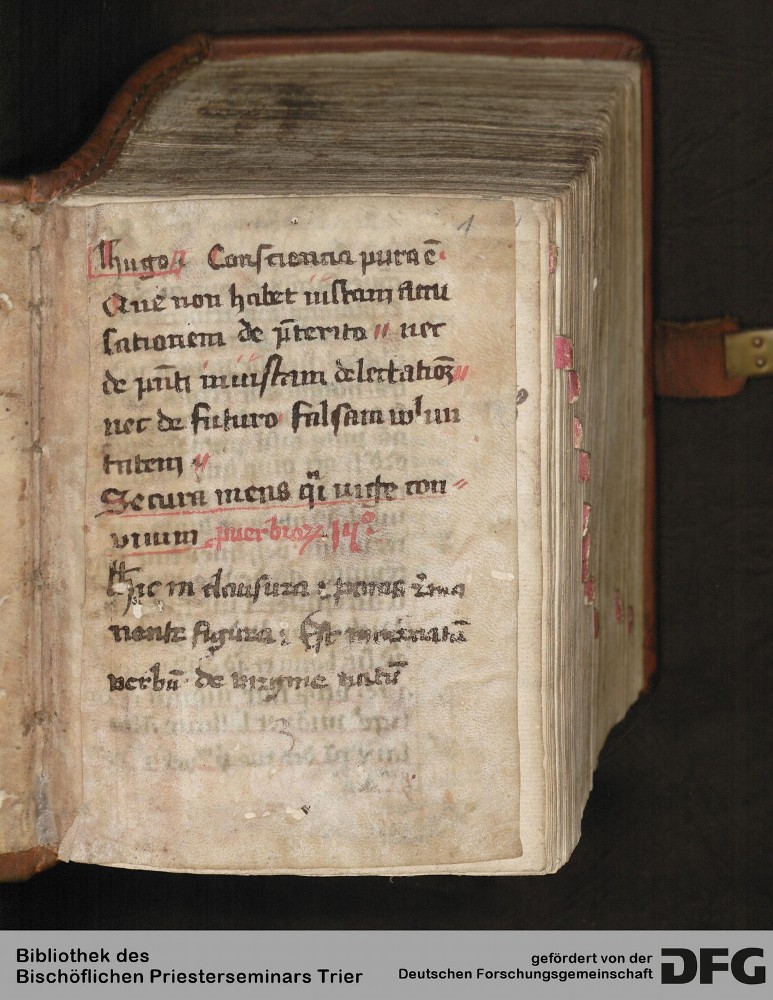 1
Hugo Consciencia pura ē
Que non habet iustam accu
sationem de p̄terito nec
de pn̄ti iniustam delectationꝫ
nec de futuro falsam volun
tatem
Secura mens q̄i iuge con
viuium puerbioꝝ 14º
Hic in clausura
nante figura Est incarnatū
verbū de virgine natū
Bibliothek des
Bischöflichen Priesterseminars Trier
gefördert von der
Deutschen Forschungsgemeinschaft
DFG